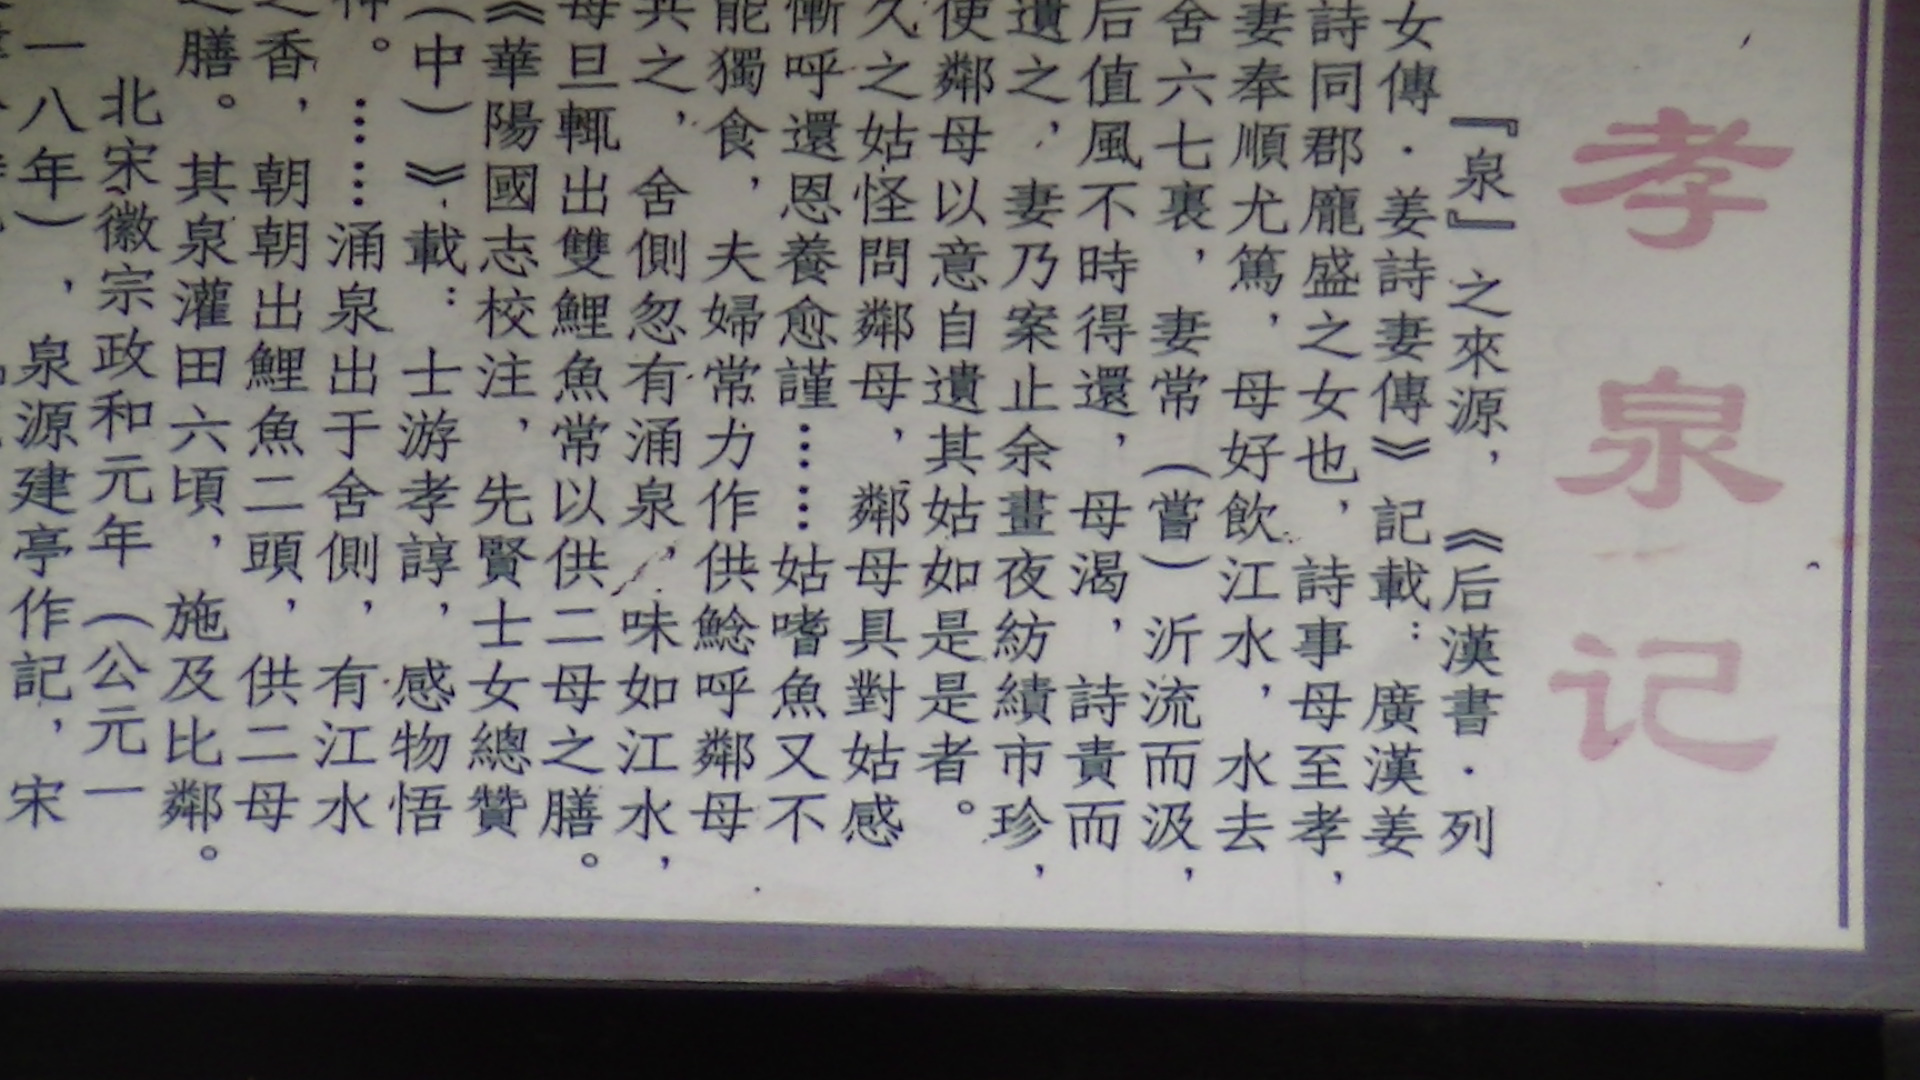 孝泉记
『泉』之來源，《后漢書·列
女傳·姜詩妻傳》記載：廣漢姜
詩同郡龐盛之女也，詩事母至孝，
妻奉順尤篤，母好飲江水，水去
舍六七裏，妻常（嘗）沂流而汲，
后值風不時得還，母渴，詩責而
遺之，妻乃案止余晝夜紡績市珍，
使鄰母以意自遺其姑如是是者。
久之姑怪問鄰母，鄰母具對姑感
慚呼還恩養愈謹……姑嗜魚又不
能獨食，夫婦常力作供鯰呼鄰母
共之，舍側忽有涌泉，味如江水，
每旦輒出雙鯉魚常以供二母之膳。
《華陽國志校注，先賢士女總贊
（中）》載：士游孝諄，感物悟
神。……涌泉出于舍側，有江水
之香，朝朝出鯉魚二頭，供二母
之膳。其泉灌田六頃，施及比鄰。
北宋徽宗政和元年（公元一
一八年），泉源建亭作記，宋